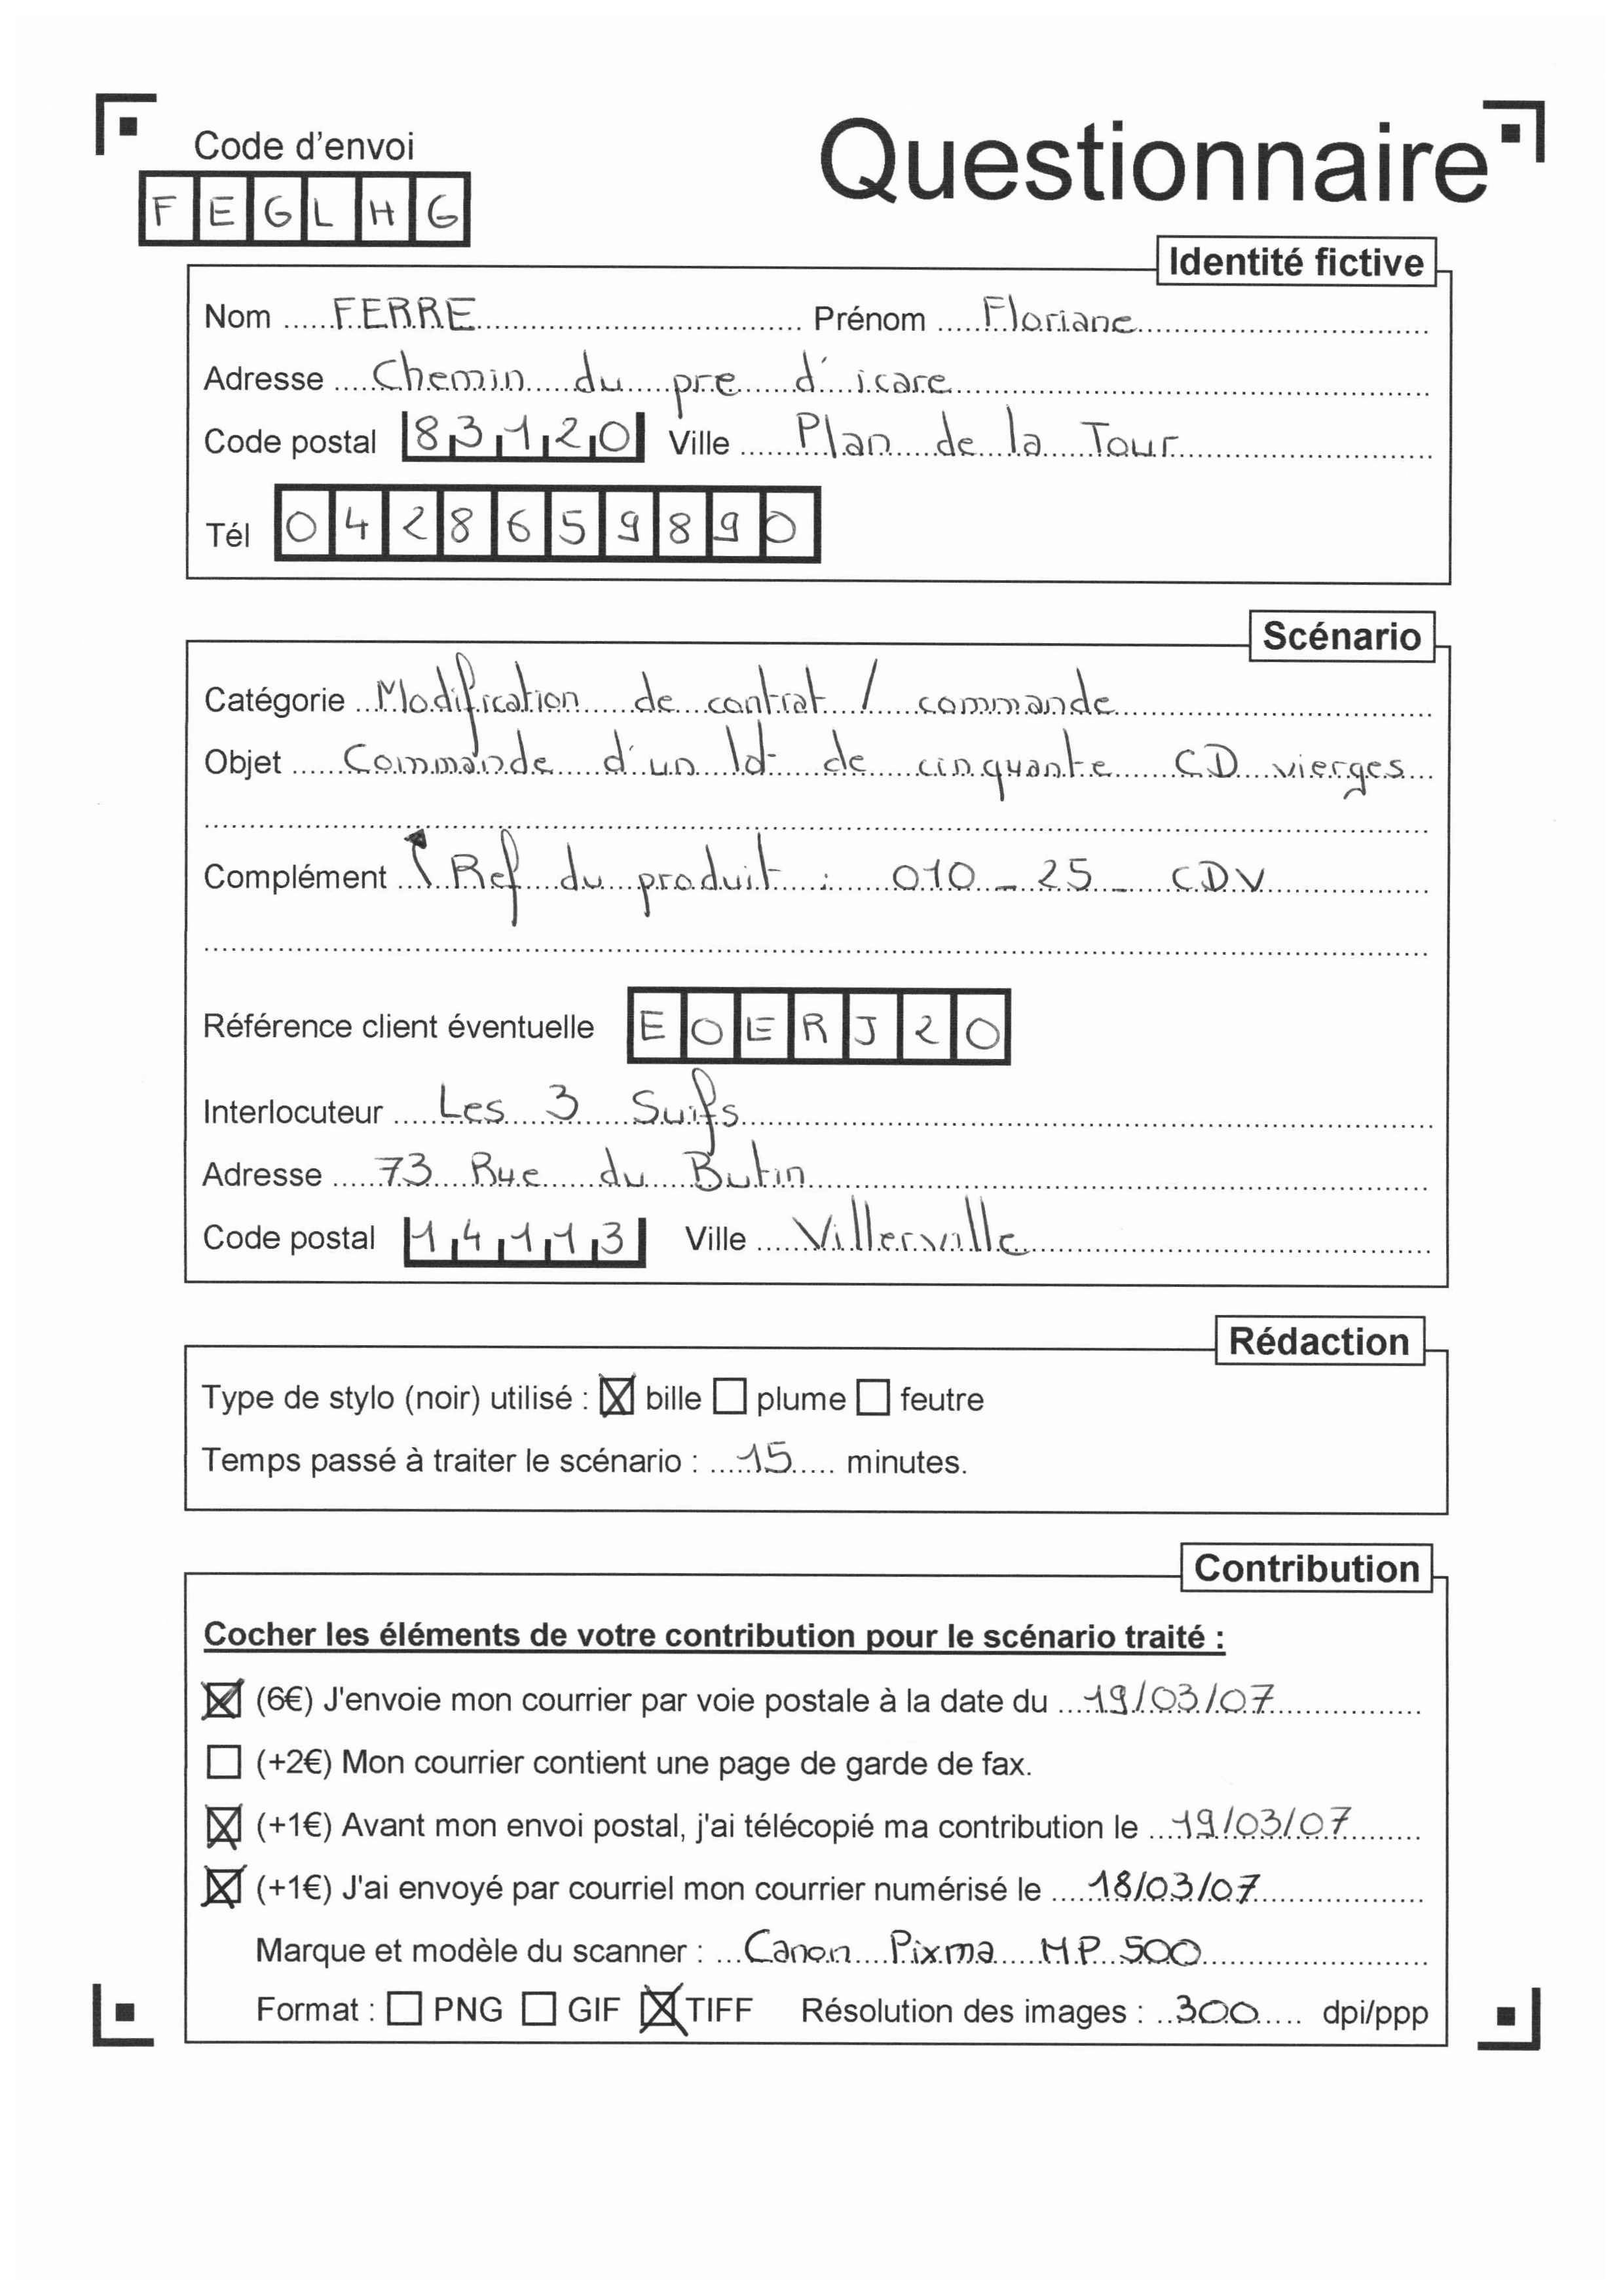 Code d'envoi
Questionnaire
FEGLHG
Identité fictive
Nom FERRE Prénom Floriane
Adresse Chemin du pre d'icare
Code postal 83120 Ville Plan de la Tour
Tél 0428659890
Scénario
Catégorie Modification de contrat / commande
Objet Commande d'un lot de cinquante CD vierges
Complément Ref du produit : 010 - 25 - CDV
Référence client éventuelle EOERJ20
Interlocuteur Les 3 Suifs
Adresse 73 Rue du Butin
Code postal 14113 Ville Villerville
Rédaction
Type de stylo (noir) utilisé : ☒ bille ☐ plume ☐ feutre
Temps passé à traiter le scénario : 15 minutes.
Contribution
Cocher les éléments de votre contribution pour le scénario traité :
☒ (6€) J'envoie mon courrier par voie postale à la date du 19/03/07
☐ (+2€) Mon courrier contient une page de garde de fax.
☒ (+1€) Avant mon envoi postal, j'ai télécopié ma contribution le 19/03/07
☒ (+1€) J'ai envoyé par courriel mon courrier numérisé le 18/03/07
Marque et modèle du scanner : Canon Pixma MP 500
Format : ☐ PNG ☐ GIF ☒ TIFF Résolution des images : 300 dpi/ppp